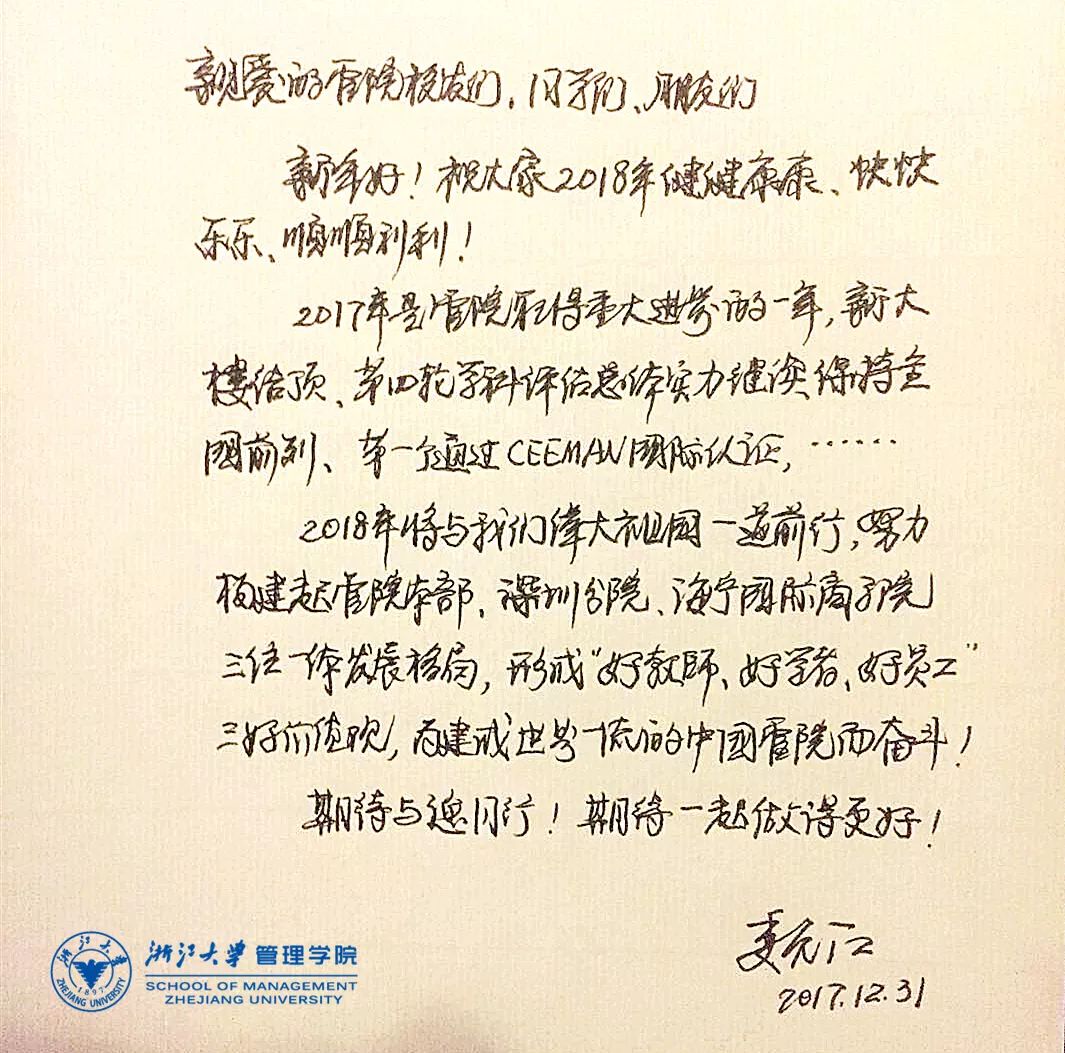 亲爱的管院校友们、同学们、朋友们
新年好！祝大家2018年健健康康、快快
乐乐、顺顺利利！
2017年是管院取得重大进步的一年，新大
楼结顶、第四轮学科评估总体实力继续保持全
国前列、第一个通过CEEMAN国际认证，……
2018年将与我们伟大祖国一道前行，努力
构建起管院本部、深圳分院、海宁国际商学院
三位一体发展格局，形成“好教师、好学者、好员工”
三好价值观，为建成世界一流的中国管院而奋斗！
期待与您同行！期待一起做得更好！
2017.12.31
浙江大学 管理学院
SCHOOL OF MANAGEMENT
ZHEJIANG UNIVERSITY
浙江大学
1897
ZHEJIANG UNIVERSITY